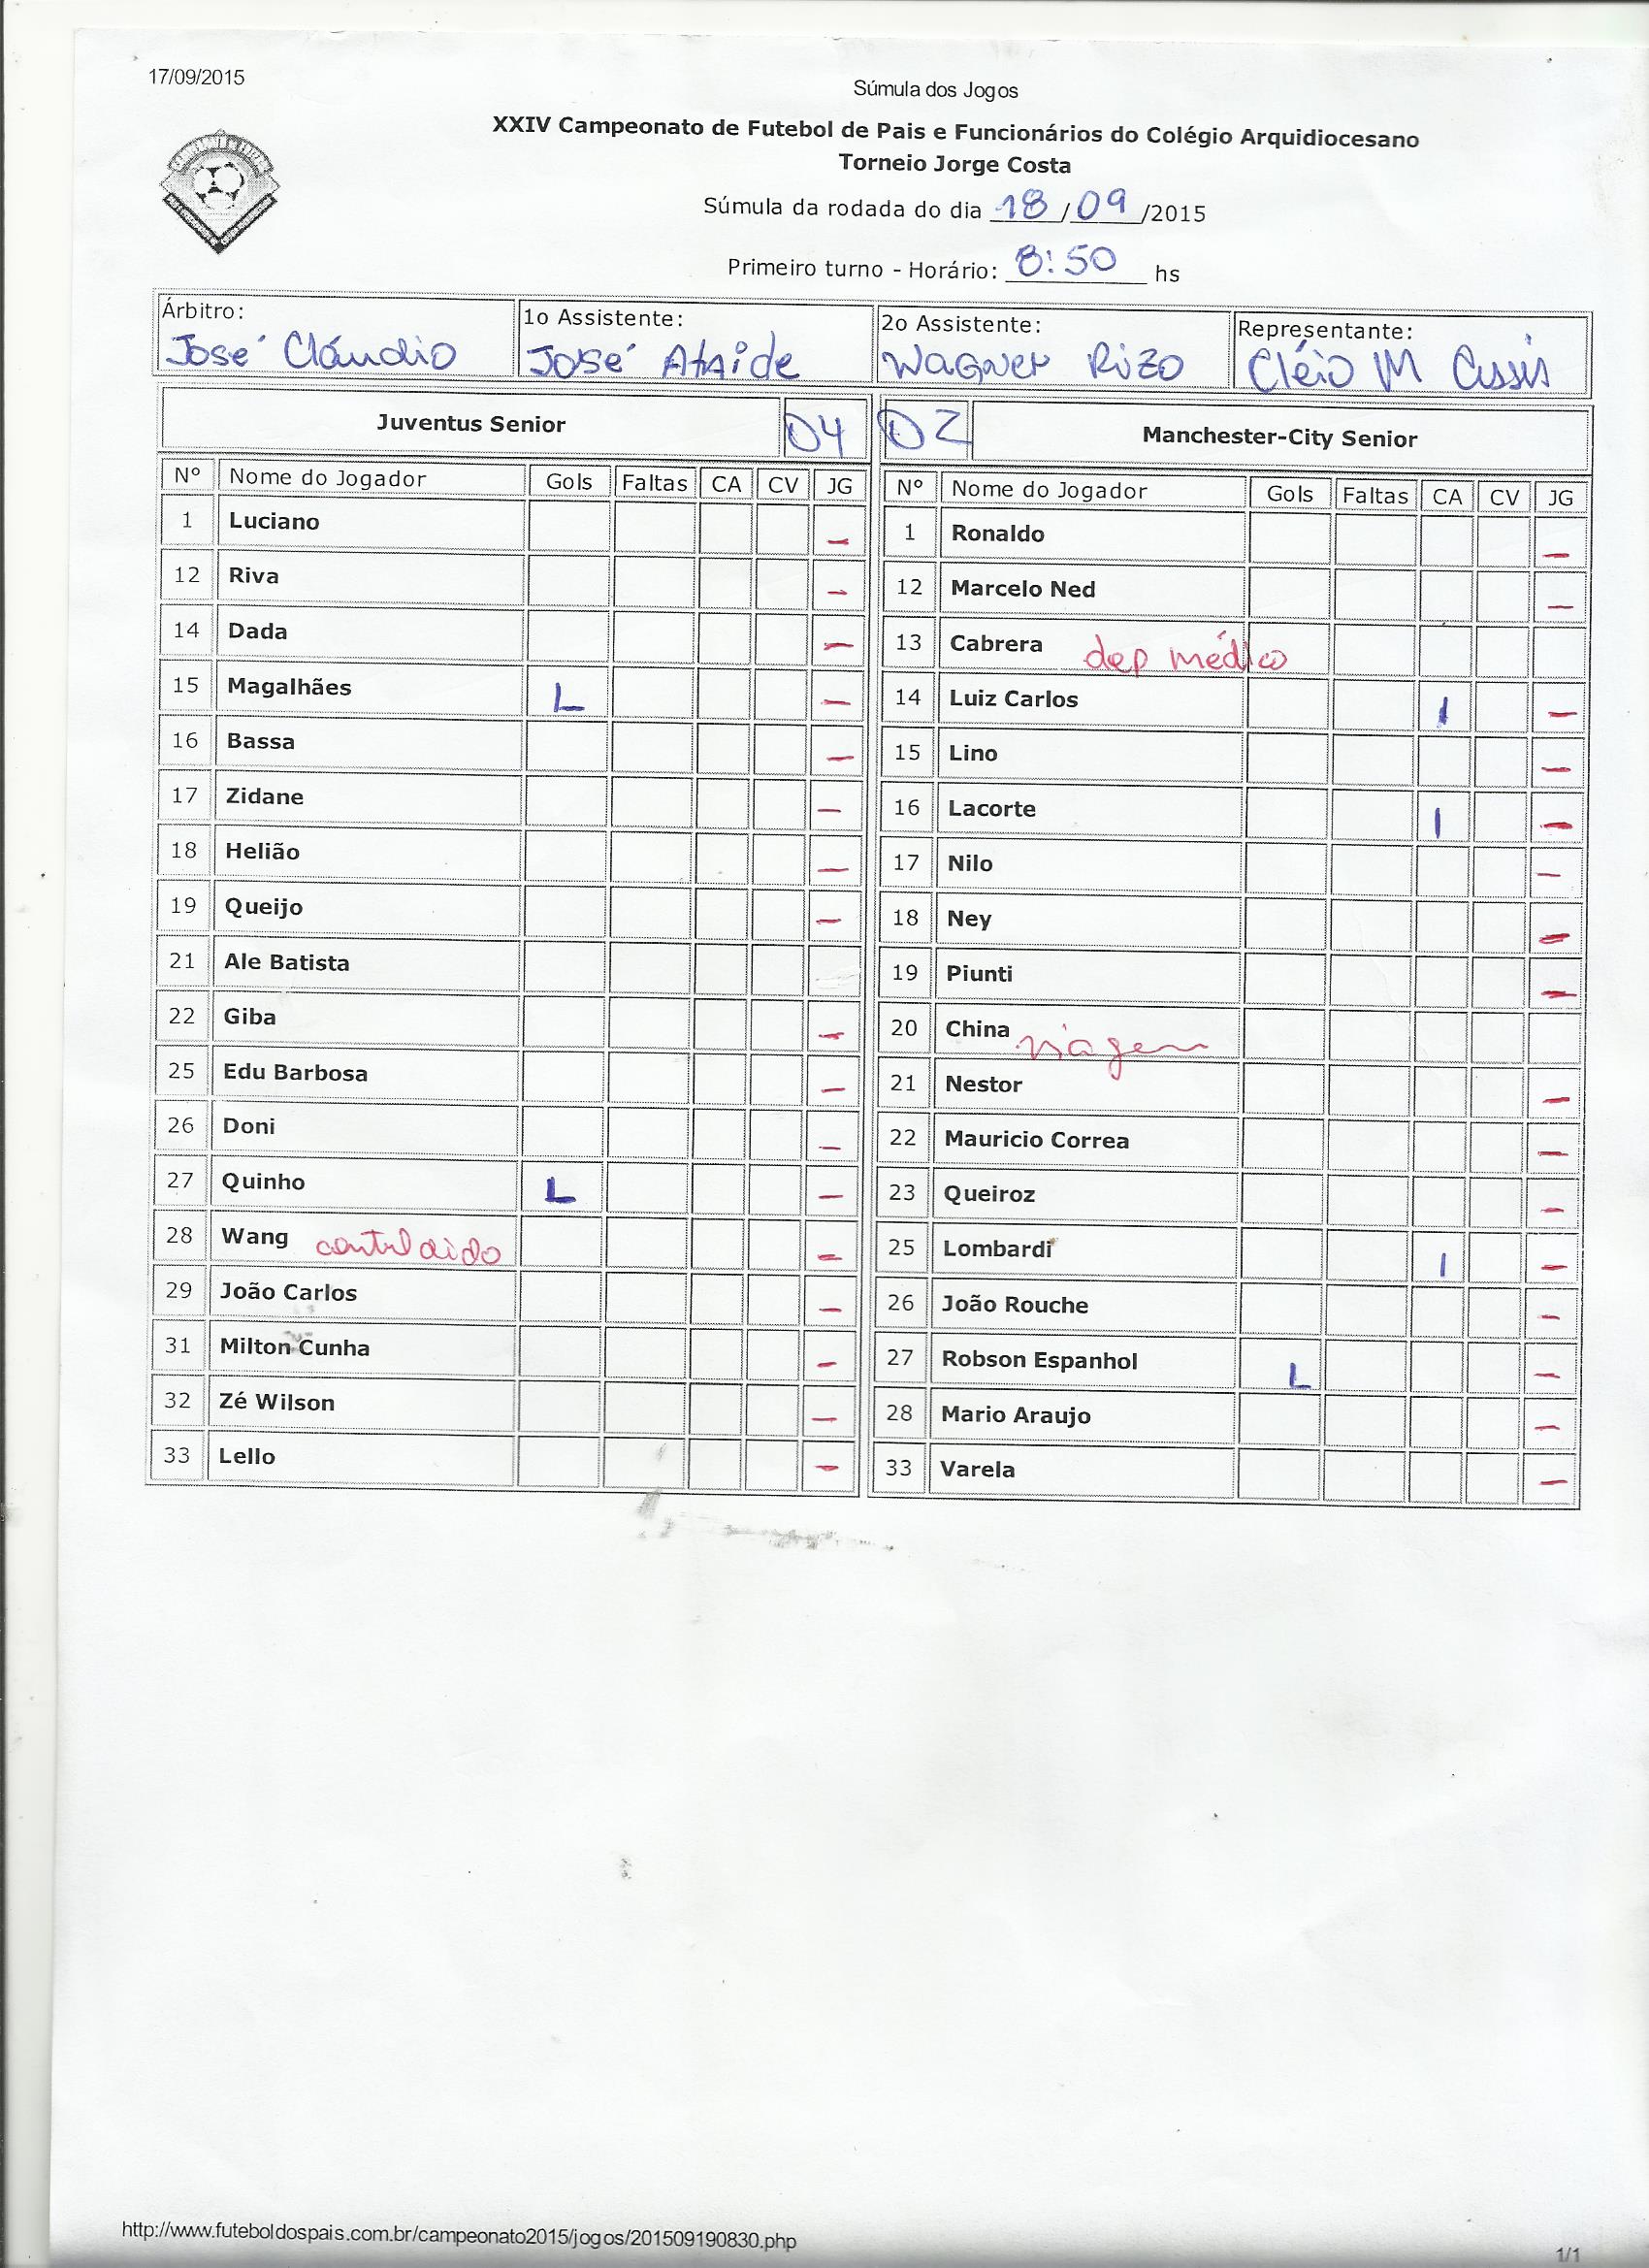 17/09/2015
Súmula dos Jogos
XXIV Campeonato de Futebol de Pais e Funcionários do Colégio Arquidiocesano
Torneio Jorge Costa
Súmula da rodada do dia 18/09/2015
Primeiro turno - Horário: 8:50 hs
Árbitro: 1o Assistente: 2o Assistente: Representante:
José Cláudio José Ataide Wagner Rizo Cléio M Assis
Juventus Senior 04 02 Manchester-City Senior
Nº Nome do Jogador Gols Faltas CA CV JG Nº Nome do Jogador Gols Faltas CA CV JG
1 Luciano — 1 Ronaldo —
12 Riva — 12 Marcelo Ned —
14 Dada — 13 Cabrera dep médico
15 Magalhães L — 14 Luiz Carlos I —
16 Bassa — 15 Lino —
17 Zidane — 16 Lacorte I —
18 Helião — 17 Nilo —
19 Queijo — 18 Ney —
21 Ale Batista 19 Piunti —
22 Giba — 20 China viagem
25 Edu Barbosa — 21 Nestor —
26 Doni — 22 Mauricio Correa —
27 Quinho L — 23 Queiroz —
28 Wang — 25 Lombardi I —
29 João Carlos — 26 João Rouche —
31 Milton Cunha — 27 Robson Espanhol L —
32 Zé Wilson — 28 Mario Araujo —
33 Lello — 33 Varela —
http://www.futeboldospais.com.br/campeonato2015/jogos/201509190830.php
1/1